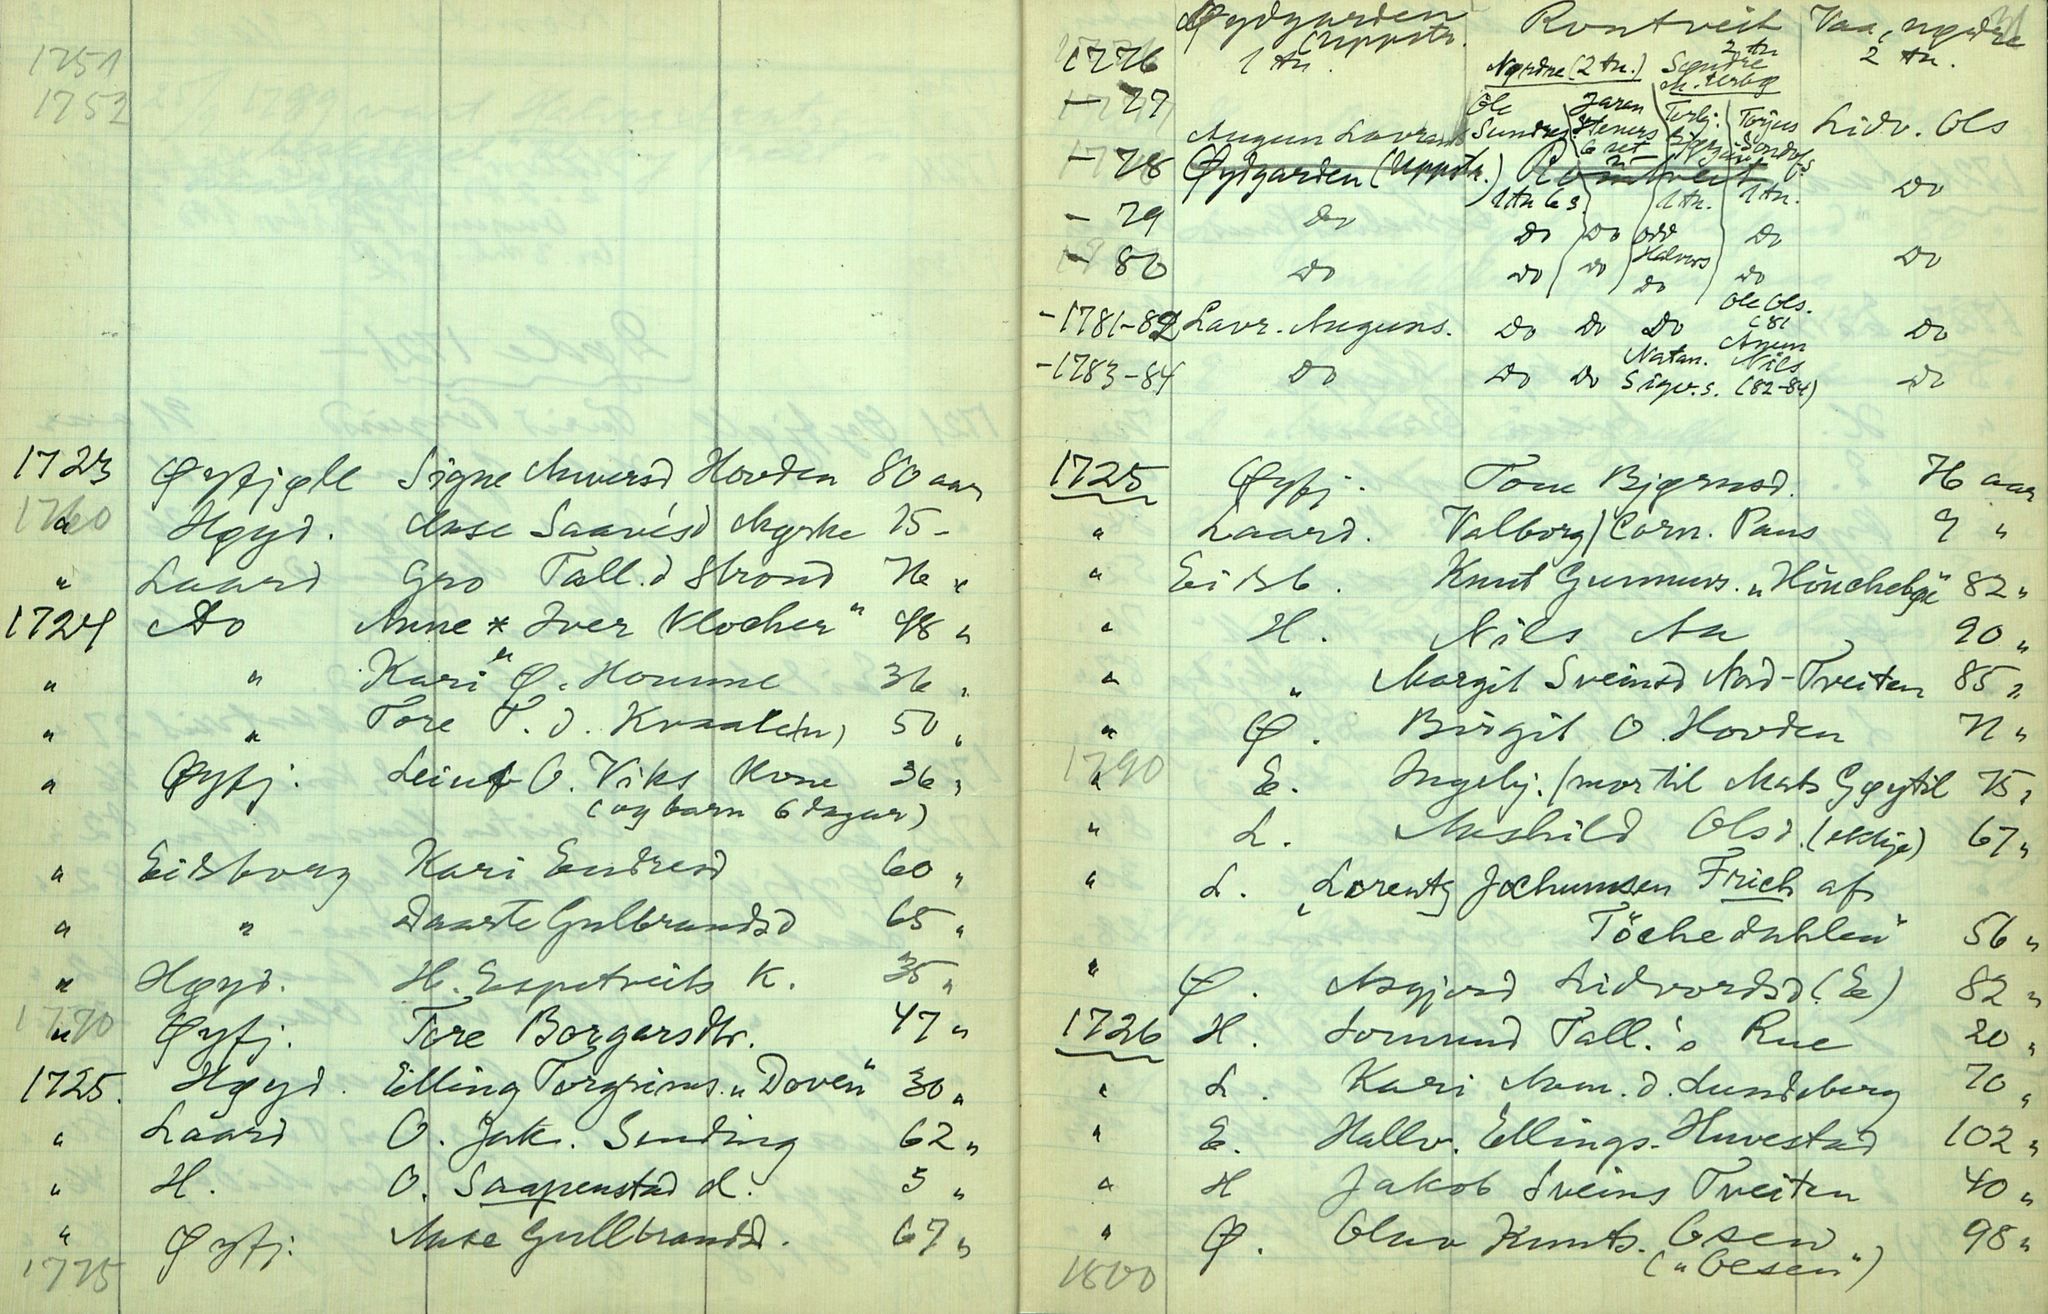 1751
1752
1723 Øyfjell Signe Anversd Hovden 80 aar
1760
" Høyd. Aase Saavesd Myrke 75 -
" Laard Gro Tall.d Strond 76 "
1724 Do Anne * Iver Klocker" 48 "
" " Kari Ø. Homme 36 "
" " Tore T. d. Kvaale(n) 50 "
" Øyfj. Leiuf O. Viks Kone 36 "
(og barn 6 dagar)
" Eidsborg Kari Endresd 60 "
" " Daarte Gulbrandsd 65 "
" Høyd. H. Espetveits K. 35 "
1770
" Øyfj. Tore Borgarsdtr. 47 "
1725. Høyd. Elling Torgrims. "Doven" 30 "
" Laard O. Jak. Sending 62 "
" H. O. Saapenstad d. 5 "
" Øyfj. Aase Gullbrandsd. 67 "
1775
31
Øydgarden (Uppstn. Rontveit Vaa, nydre
1776 1 tn. Nørdre (2 tn.) Søndre 2 tn 2 tn.
- 77 Augun Lavrands Ole Sundre Jaran Steners 6 set Torbj. Torjus Sondofs Lidv. Ols
- 78 Øydgarden (Uppstn.) Rontveit 1 tn 6 s. 1 tn. 1 tn. Do
- 79 Do Do Do Odd Halvors Do
- 80 Do Do Do Do Do Do
- 1781-82 Lavr. Auguns. Do Do Do Ole Ols. (81 Do
- 1783-84 Do Do Do Natan. Sigv.s. Nils (82-84) Do
1725 Øyfj. Tone Bjørnsd. 76 aar
" Laard. Valborg / Corn. Paus 9 "
" Eidsb. Knut Gunnuvs. "Hönchebÿe" 82 "
" H. Nils Aa 90 "
" " Margit Sveinsd Nord-Tveiten 85 "
" Ø. Birgit O. Hovden 71 "
1790
" E. Ingebj. /mor til Mats Gøytil 75 "
" L. Aashild Olsd. (ektja) 67 "
" L. "Lorentz Jochumsen Frich af
Töchedahlen" 56 "
" Ø. Asgjerd Lidvordsd. (E) 82 "
1726 H. Jomund Tall.'s Rue 20 "
" L. Kari Aam.d. Lundeberg 70 "
" E. Hallv. Ellings. Huvestad 102 "
" H Jakob Sveins Tveiten 40 "
" Ø. Olav Knuts. Osen 98 "
("Oesen")
1800